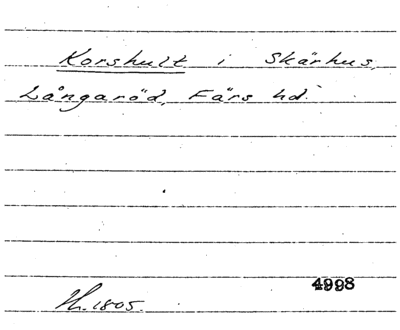 Korshult i Skärhus,
Långaröd, Färs hd.
4998
Th. 1805.